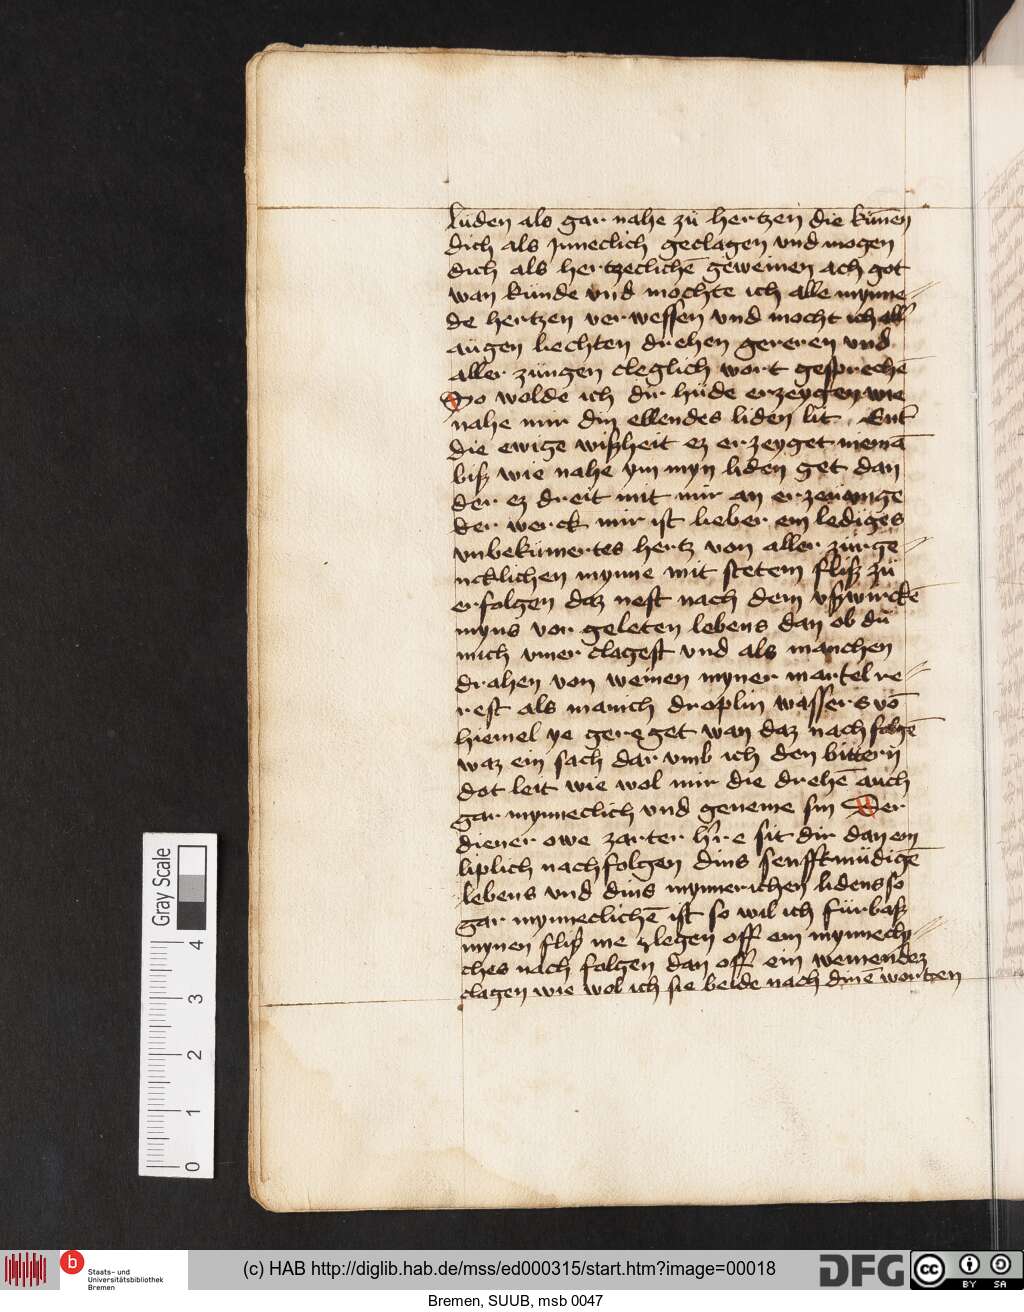 lüden als gar nahe zü hertzen die kūnen
dich als jnneclich geclagen vnd mogen
dich als hertzeclichē geweinen ach got
wan künde vnd mochte ich alle mynne⸗
de hertzen verwessen vnd mocht ich all
augen liechten drehen gereren vnd
aller züngen cleglich wort gesprechē
So wolde ich dir hüde erzeygen wie
nahe mir din ellendes liden lit
die ewige wißheit ez erzeyget niemā
biß wie nahe ym myn liden get dan
der ez dreit mit mir an erzeugunge
der werck mir ist lieber ein lediges
vnbekümertes hertz von aller zürge⸗
ncklichen mynne mit stetem fliß zü
erfolgen daz nest nach dem vßwirckē
myns vor geleten lebens dan ob dü
mich vmer clagest vnd als manchen
drahen von weinen myner martel re⸗
rest als manich droplin wassers vō
hiemel ye gereget wan daz nachfolgē
waz ein sach dar vmb ich den bittern
dot leit wie wol mir die drehē auch
gar mynneclich vnd geneme sin Der
diener owe zarter hre sit dir dan ein
liplich nachfolgen dins senfftmüdigē
lebens vnd dins mynnerichen lidens so
gar mynneclichē ist so wil ich fürbaß
mynen fliß me legen off ein mynnecly⸗
ches nach folgen dan off ein weinendez
clagen wie wol ich sie beide nach dinē worten
Gray Scale
4
3
2
1
0
b
Staats- und
Universitätsbibliothek
Bremen
(c) HAB http://diglib.hab.de/mss/ed000315/start.htm?image=00018
DFG
cc
BY SA
Bremen, SUUB, msb 0047